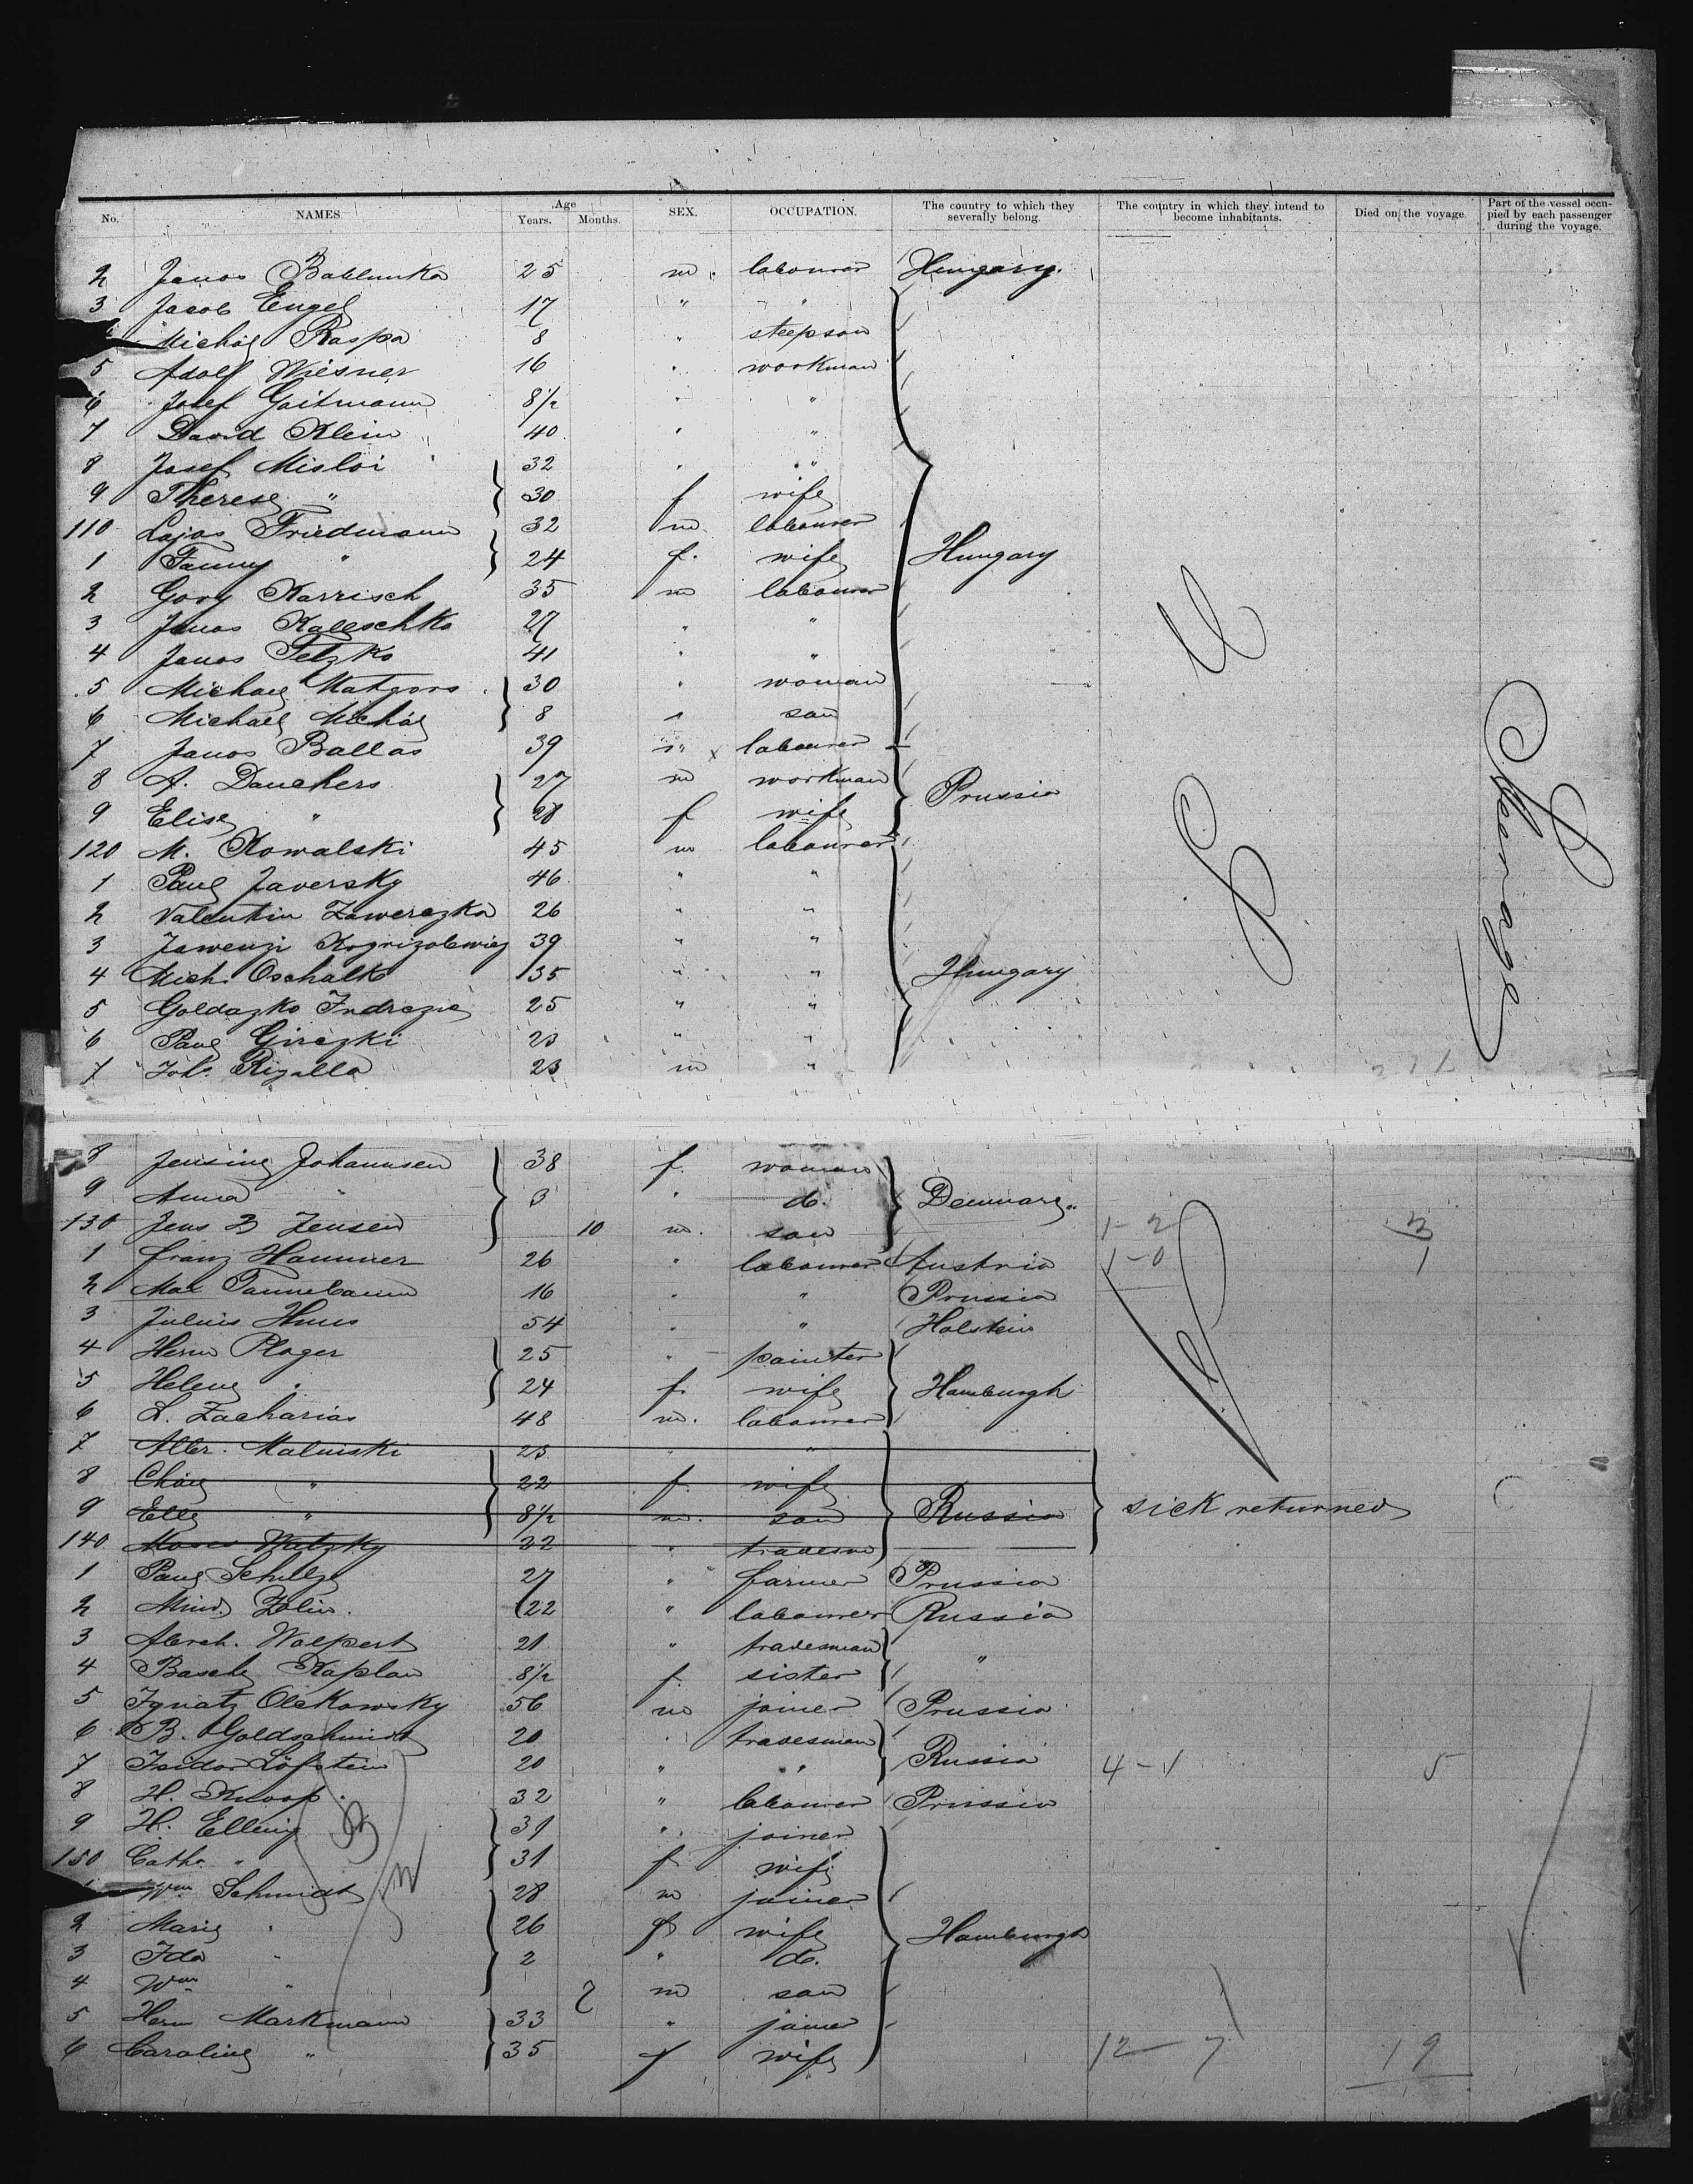 No. NAMES. Age Years. Months. SEX. OCCUPATION. The country to which they severally belong. The country in which they intend to become inhabitants. Died on the voyage. Part of the vessel occupied by each passenger during the voyage.
2 Janos Bablunka 25 m. labourer Hungary.
3 Jacob Engel 17 " "
Michál Raspa 8 " stepson
5 Adolf Wiesner 16 " workman
6 Josef Goitmann 8½ " "
7 David Klein 40 " "
8 Josef Misloi 32 " "
9 Therese " 30 f wife
110 Lajos Friedmann 32 m labourer
1 Fanny " 24 f. wife Hungary
2 Gory Karrisch 35 m labourer
3 Janos Kalleschko 27 " "
4 Janos Telzko 41 " "
5 Michael Matgors 30 " woman
6 Michael Michál 8 " son
7 Janos Ballas 39 " x labourer
8 A. Dauchers 27 m workman Prussia
9 Elise " 28 f wife
120 M. Kowalski 45 m labourer
1 Paul Javersky 46 " "
2 Valentin Zawerazka 26 " "
3 39 " "
4 Mich. Oschalk 35 " " Hungary
5 Goldazko 25 " "
6 Paul Girezki 23 " "
7 Joh. Rigalla 23 m "
U S
Steerage
8 Jensine Johannsen 38 f. woman
9 Anna " 3 " do. Denmark.
130 Jens B Jensen 10 m. son 1-2 3
1 Franz Hammer 26 " labourer Austria 1-0 1
2 Max Tannebaum 16 " " Prussia
3 Julius 54 " " Holstein
4 Herm Plager 25 " painter
5 Helene " 24 f. wife Hamburgh
6 L. Zacharias 48 m. labourer
7 Alex. Malinski 25 " "
8 " 22 f. wife
9 " 8½ m. son Russia sick returned
140 Moses Watzky 22 " tradesm
1 Paul Schulz 27 " farmer Prussia
2 22 " labourer Russia
3 Abrah. Wolpert 21 " tradesman
4 Basche Kaplan 8½ f sister "
5 Ignatz Olekowsky 56 m joiner Prussia
6 B. Goldschmidt 20 " tradesman
7 Isidor Löfstein 20 " " Russia 4-1 5
8 H. Knoop. 32 " labourer Prussia
9 H. Elling 31 " joiner
150 Cath. " 31 f wife
Wm Schmidt 28 m joiner
2 Marie " 26 f wife Hamburgh
3 Ida " 2 " do.
4 Wm " m son
5 Herm Markmann 33 " joiner
6 Caroline " 35 f wife 12-7 19